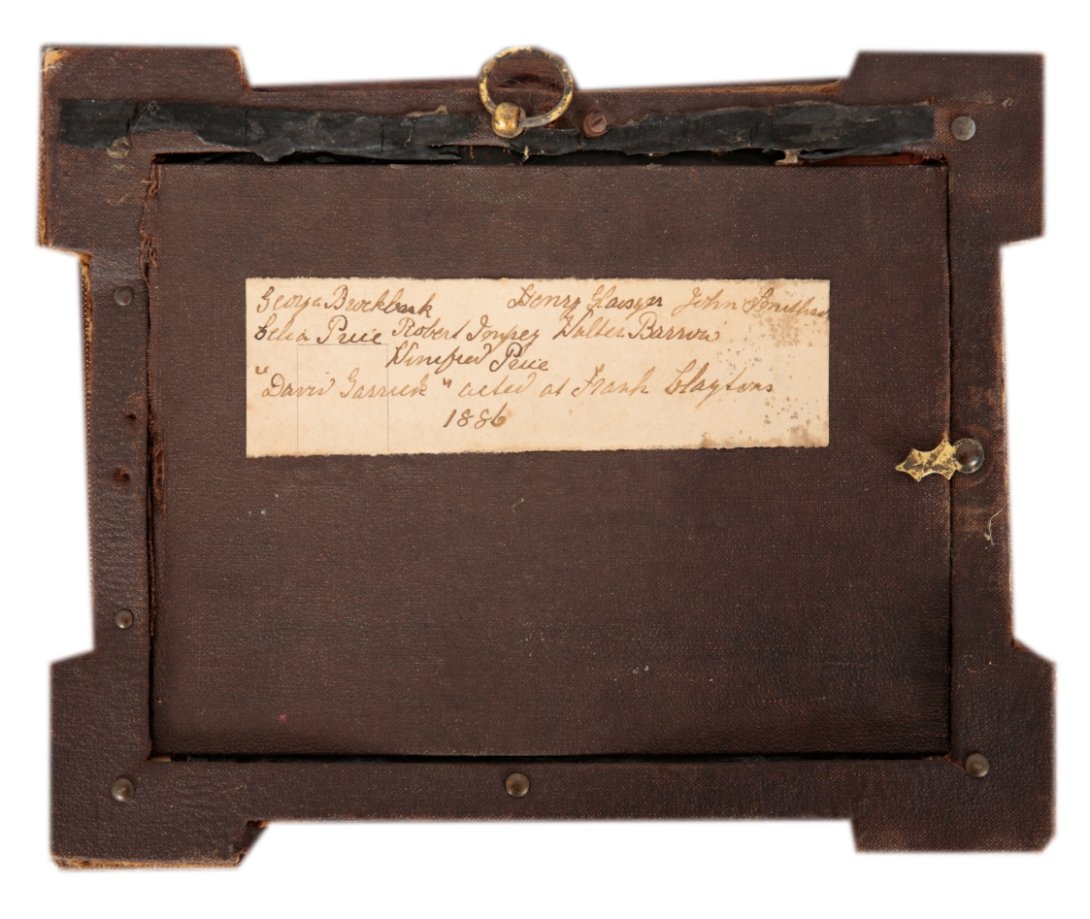 George Brockbank Henry John
Celia Price Robert Impey Walter Barrow
Winifred Price
"David Garrick" acted at Frank Claytons
1886